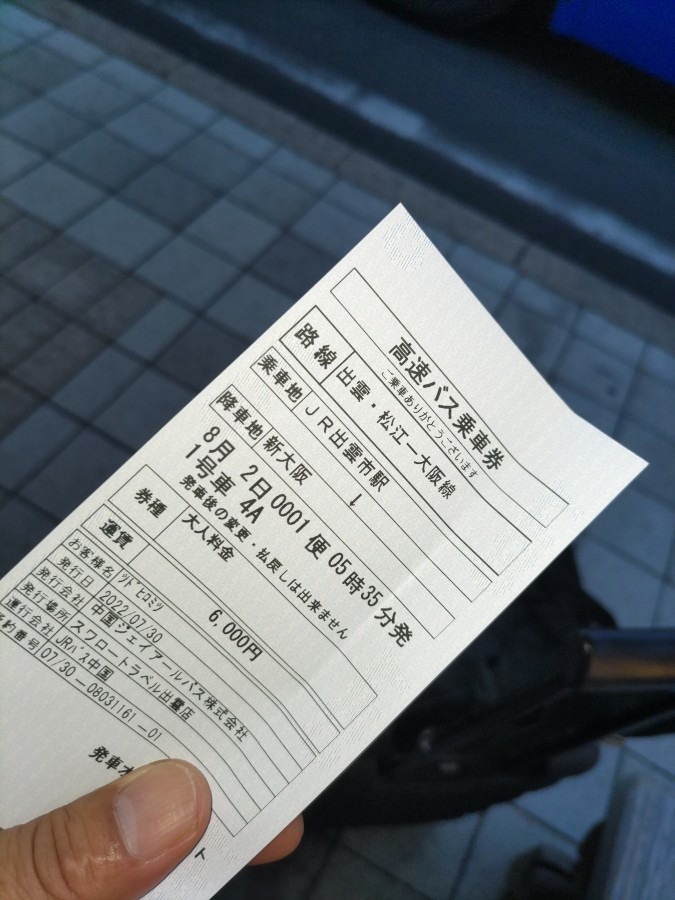 高速バス乗車券
ご乗車ありがとうございます
路線 出雲・松江ー大阪線
乗車地 JR出雲市駅
↓
降車地 新大阪
8月 2日 0001 便 05時35分発
1号車 4A
発車後の変更・払戻しは出来ません
券種 大人料金
運賃 6,000円
お客様名 ツド ヒロミツ
発行日 2022/07/30
発行会社 中国ジェイアールバス株式会社
発行場所 スワロートラベル出雲店
運行会社 JRバス中国
約番号 07/30-08031161-01
発車オ
ト